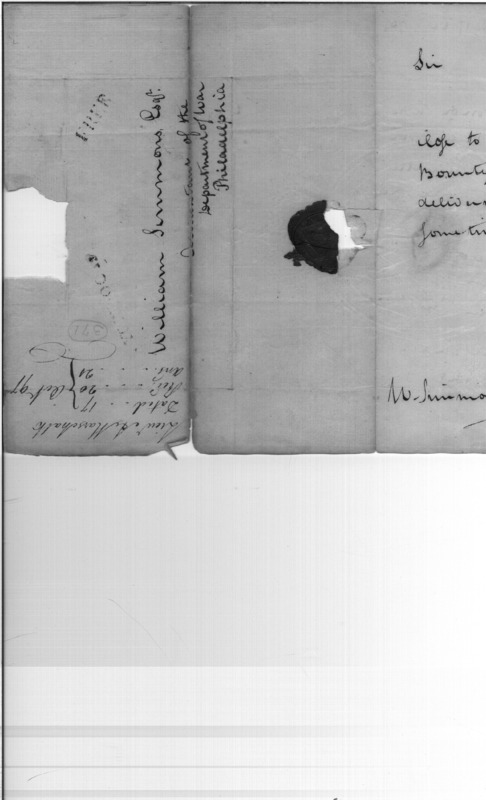 FREE
William Simmons, Esqr.
Accountant of the
Department of War
Philadelphia
Lieut A. Marschalk
Dated .. 17
Rec'd .. 20 Oct 97
ans. .. 21
271
Sir
Bounty
deliver
Sometim
W. Simmo